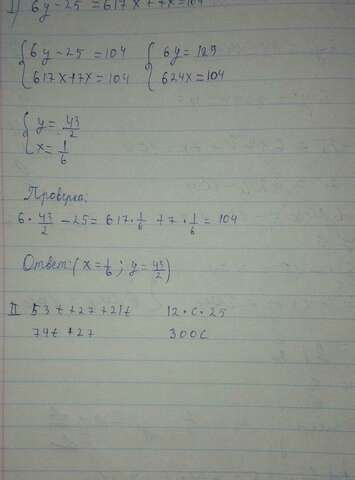 1) 6y - 25 = 617x + 7x = 104
{6y - 25 = 104 {6y = 129
{617x + 7x = 104 {624x = 104
{y = 43/2
{x = 1/6
Проверка:
6 · 43/2 - 25 = 617 · 1/6 + 7 · 1/6 = 104
Ответ: (x = 1/6; y = 43/2)
II 53t + 27 + 21t 12 · c · 25
74t + 27 300c